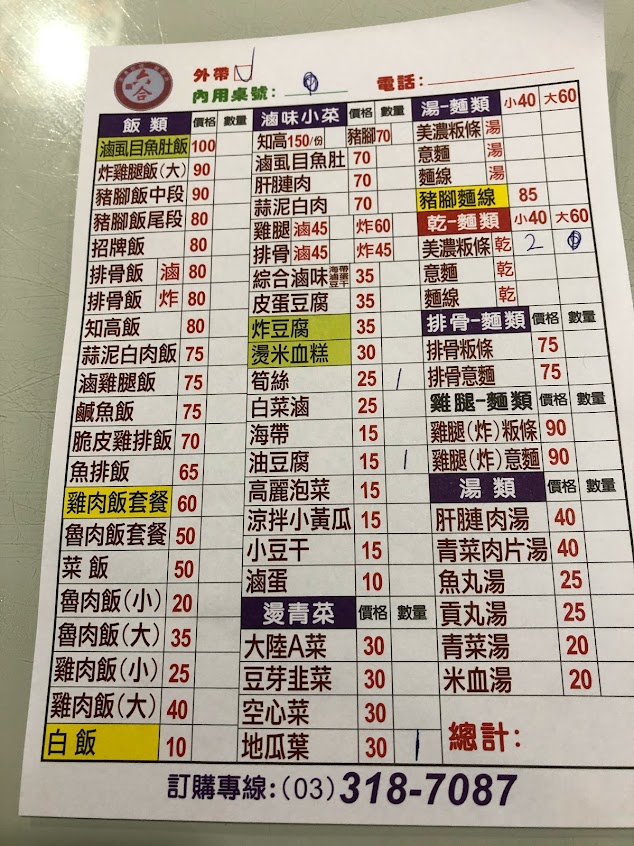 六合
外帶
內用桌號:
電話:
飯類 價格 數量
滷虱目魚肚飯 100
炸雞腿飯(大) 90
豬腳飯中段 90
豬腳飯尾段 80
招牌飯 80
排骨飯 滷 80
排骨飯 炸 80
知高飯 80
蒜泥白肉飯 75
滷雞腿飯 75
鹹魚飯 75
脆皮雞排飯 70
魚排飯 65
雞肉飯套餐 60
魯肉飯套餐 50
菜飯 50
魯肉飯(小) 20
魯肉飯(大) 35
雞肉飯(小) 25
雞肉飯(大) 40
白飯 10
滷味小菜 價格 數量
知高150/份 豬腳70
滷虱目魚肚 70
肝膁肉 70
蒜泥白肉 70
雞腿 滷45 炸60
排骨 滷45 炸45
綜合滷味 海帶 滷蛋 豆干 35
皮蛋豆腐 35
炸豆腐 35
燙米血糕 30
筍絲 25 1
白菜滷 25
海帶 15
油豆腐 15 1
高麗泡菜 15
涼拌小黃瓜 15
小豆干 15
滷蛋 10
燙青菜 價格 數量
大陸A菜 30
豆芽韭菜 30
空心菜 30
地瓜葉 30 1
湯-麵類 小40 大60
美濃粄條 湯
意麵 湯
麵線 湯
豬腳麵線 85
乾-麵類 小40 大60
美濃粄條 乾 2
意麵 乾
麵線 乾
排骨-麵類 價格 數量
排骨粄條 75
排骨意麵 75
雞腿-麵類 價格 數量
雞腿(炸)粄條 90
雞腿(炸)意麵 90
湯類 價格 數量
肝膁肉湯 40
青菜肉片湯 40
魚丸湯 25
貢丸湯 25
青菜湯 20
米血湯 20
總計:
訂購專線:(03)318-7087